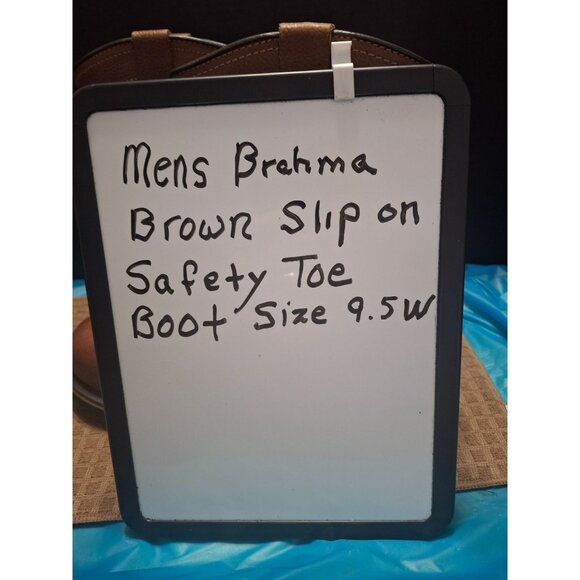 Mens Brahma
Brown Slip on
Safety Toe
Boot Size 9.5W